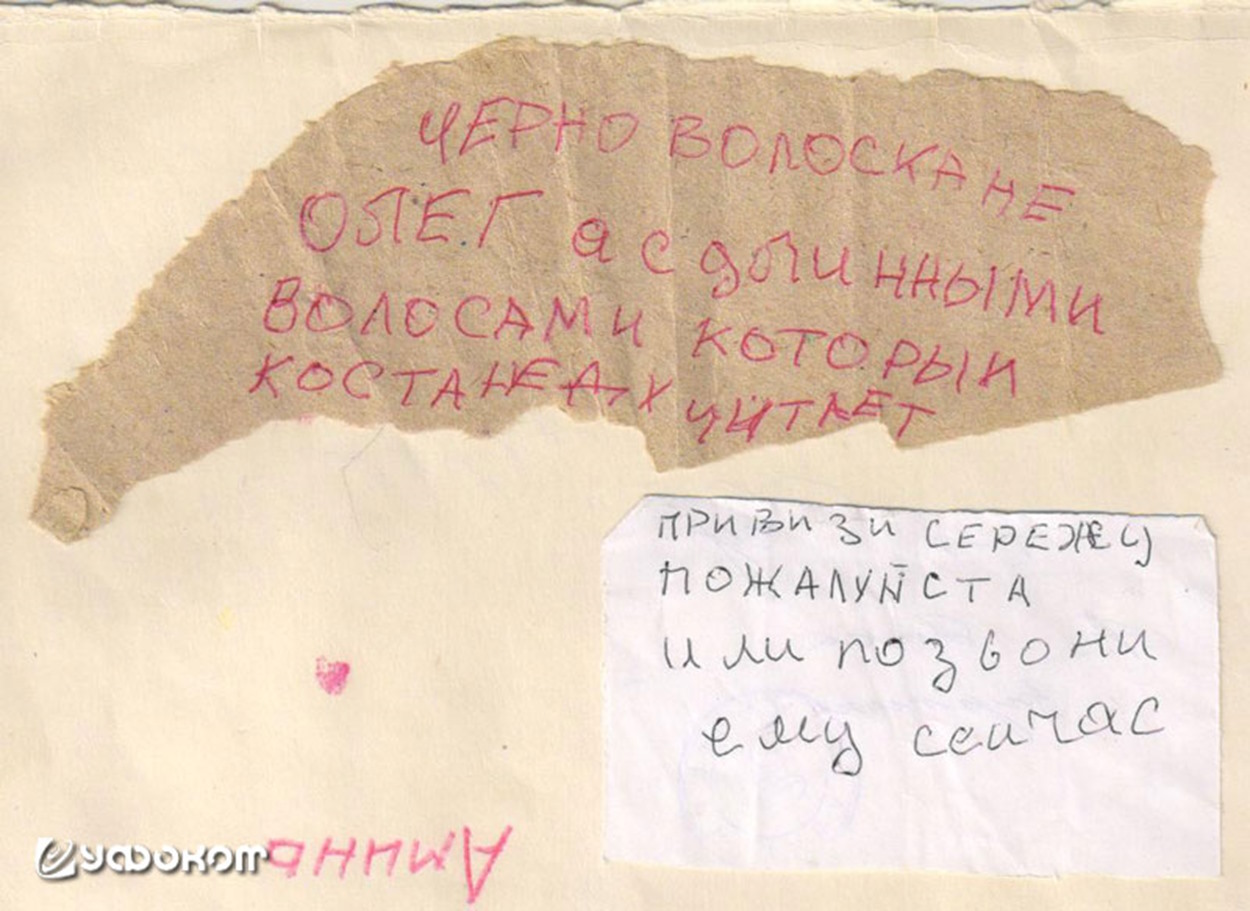 ЧЕРНО ВОЛОСКА НЕ
ОЛЕГ а с длиннными
ВОЛОСАМИ КОТОРЫИ
ЧИТАЕТ
ПРИВИЗИ СЕРЕЖУ
ПОЖАЛУЙСТА
или позвони
ему сеичас
Аминь
уфоком